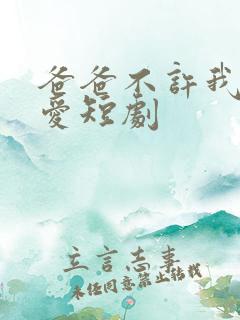 爸爸不許我
愛短劇
立言志事
未经同意禁止转载